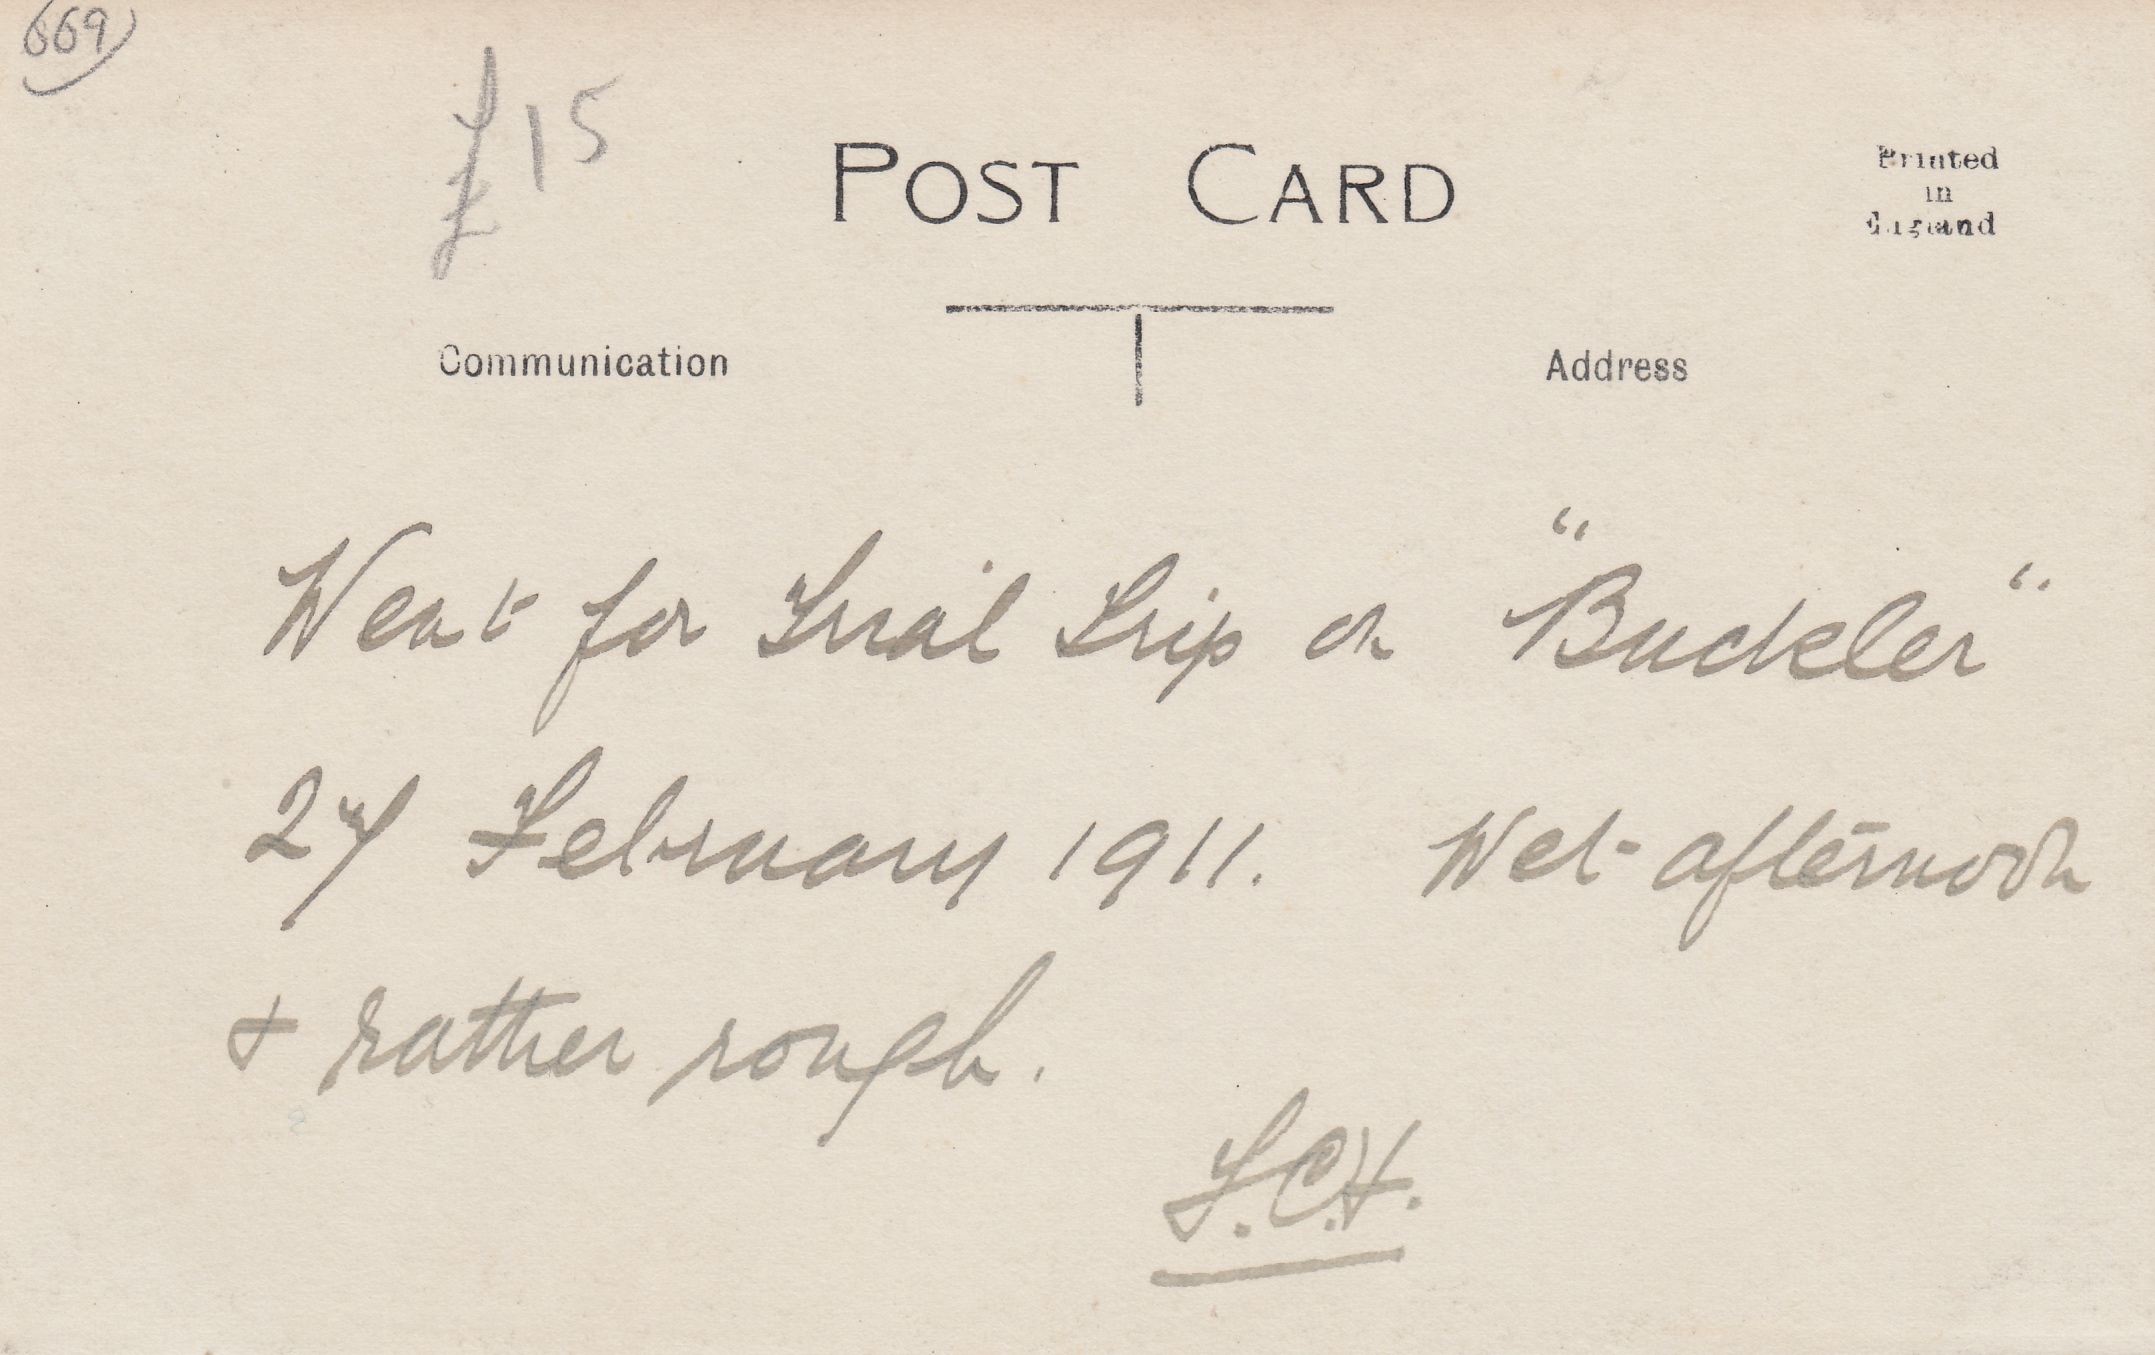 669
£15
POST CARD
Printed
in
England
Communication
Address
Went for Trial Trip on "Buckler"
27 February 1911. Wet afternoon
& rather rough.
T.C.H.